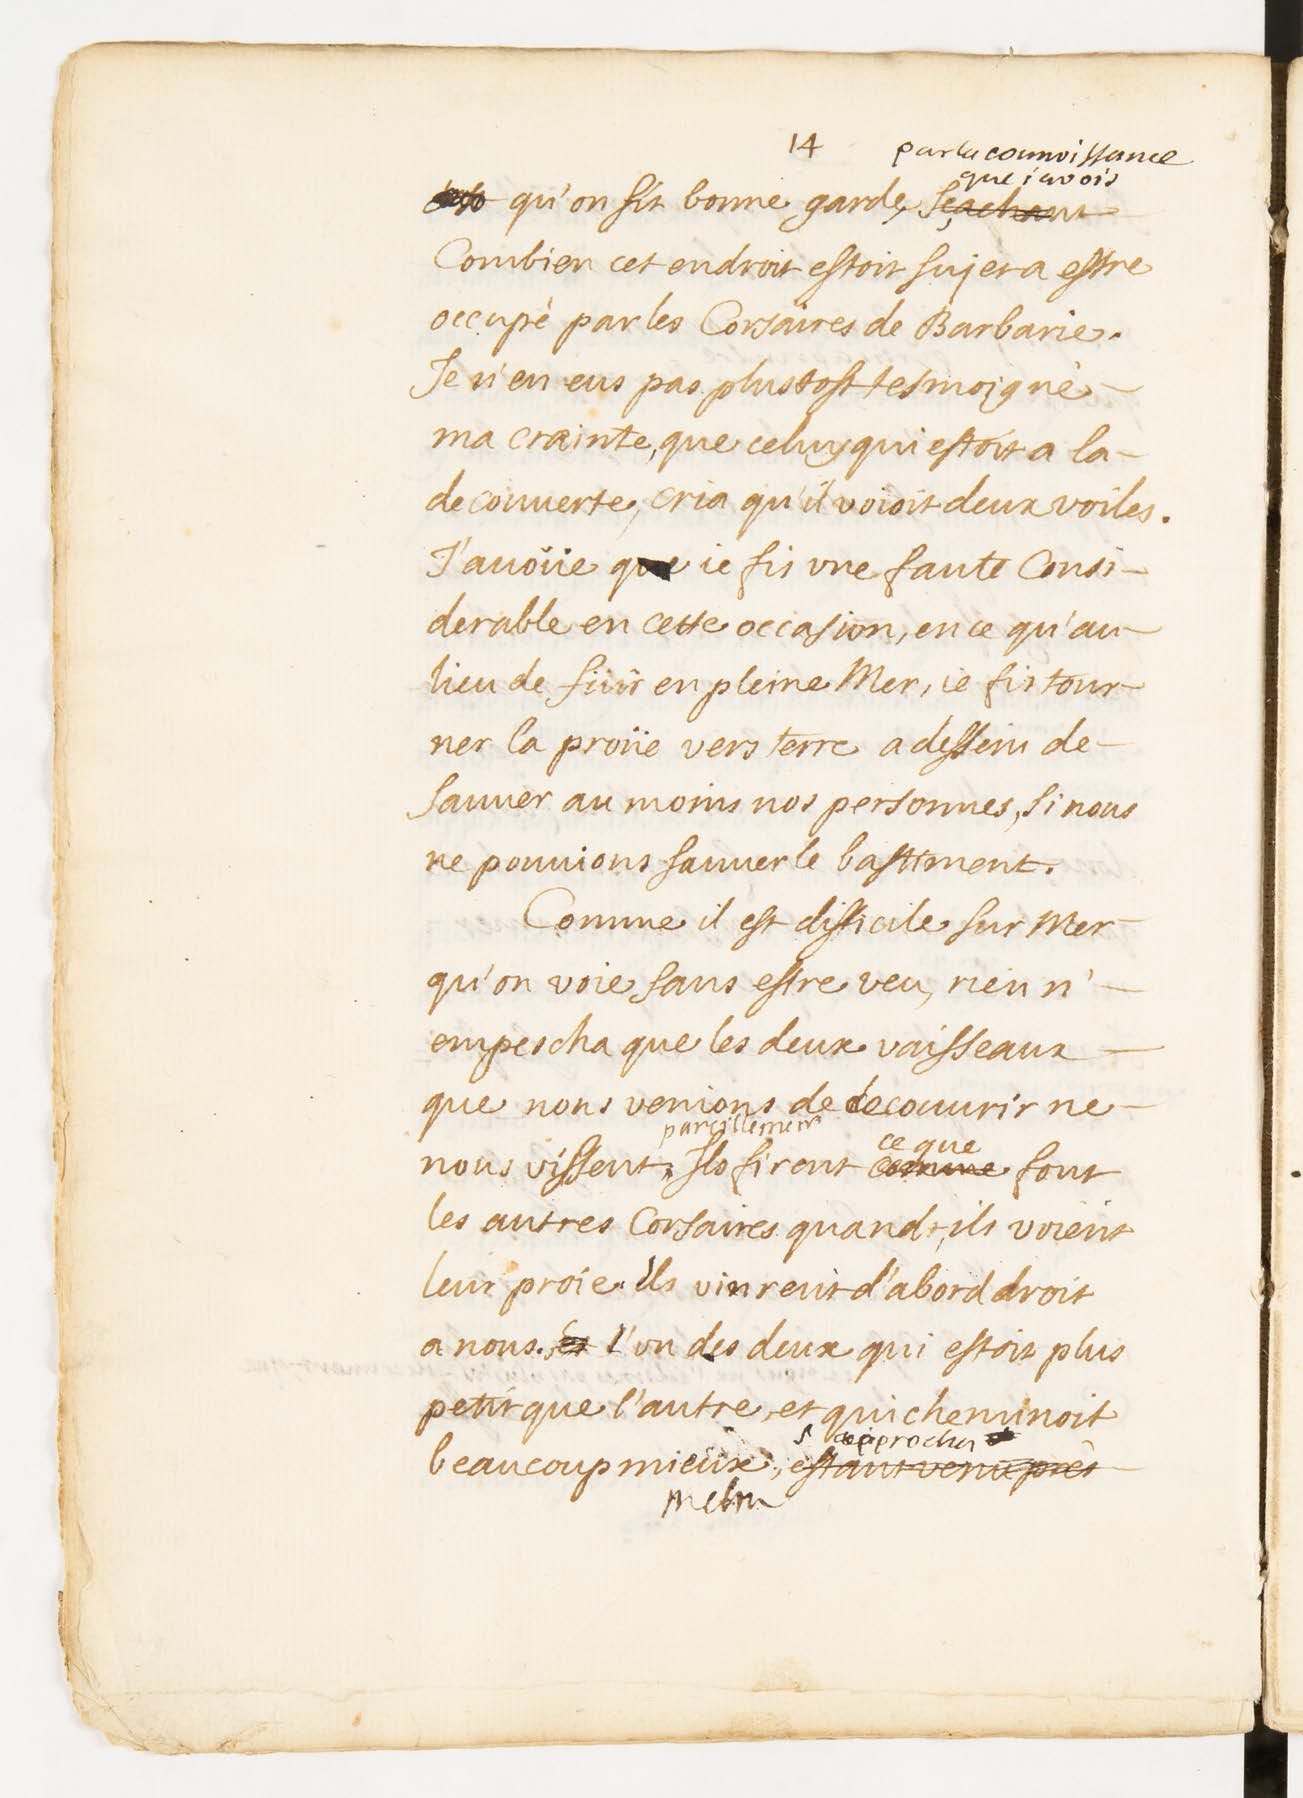 14
par la connoissance
que i'avois
qu'on fit bonne garde, sçachant
Combien cet endroit estoit sujet a estre
occupé par les Corsaires de Barbarie.
Je n'en eus pas plustost tesmoigné
ma crainte, que celuy qui estoit a la
decouuerte, cria qu'il voioit deux voiles.
J'auoüe que ie fis vne faute Consi-
derable en cette occasion, en ce qu'au
lieu de fuir en pleine Mer, ie fis tour-
ner la proüe vers terre a dessein de
sauuer au moins nos personnes, si nous
ne pouuions sauuer le bastiment.
Comme il est difficile sur Mer
qu'on voie sans estre veu, rien n'
empescha que les deux vaisseaux
que nous venions de decouurir ne
pareillement
nous vissent, Ils firent comme font
ce que
les autres Corsaires quand, ils voient
leur proie. ils vinrent d'abord droit
a nous, et l'un des deux qui estoit plus
petit que l'autre, et qui cheminoit
s'approcha
beaucoup mieux, estant venu près